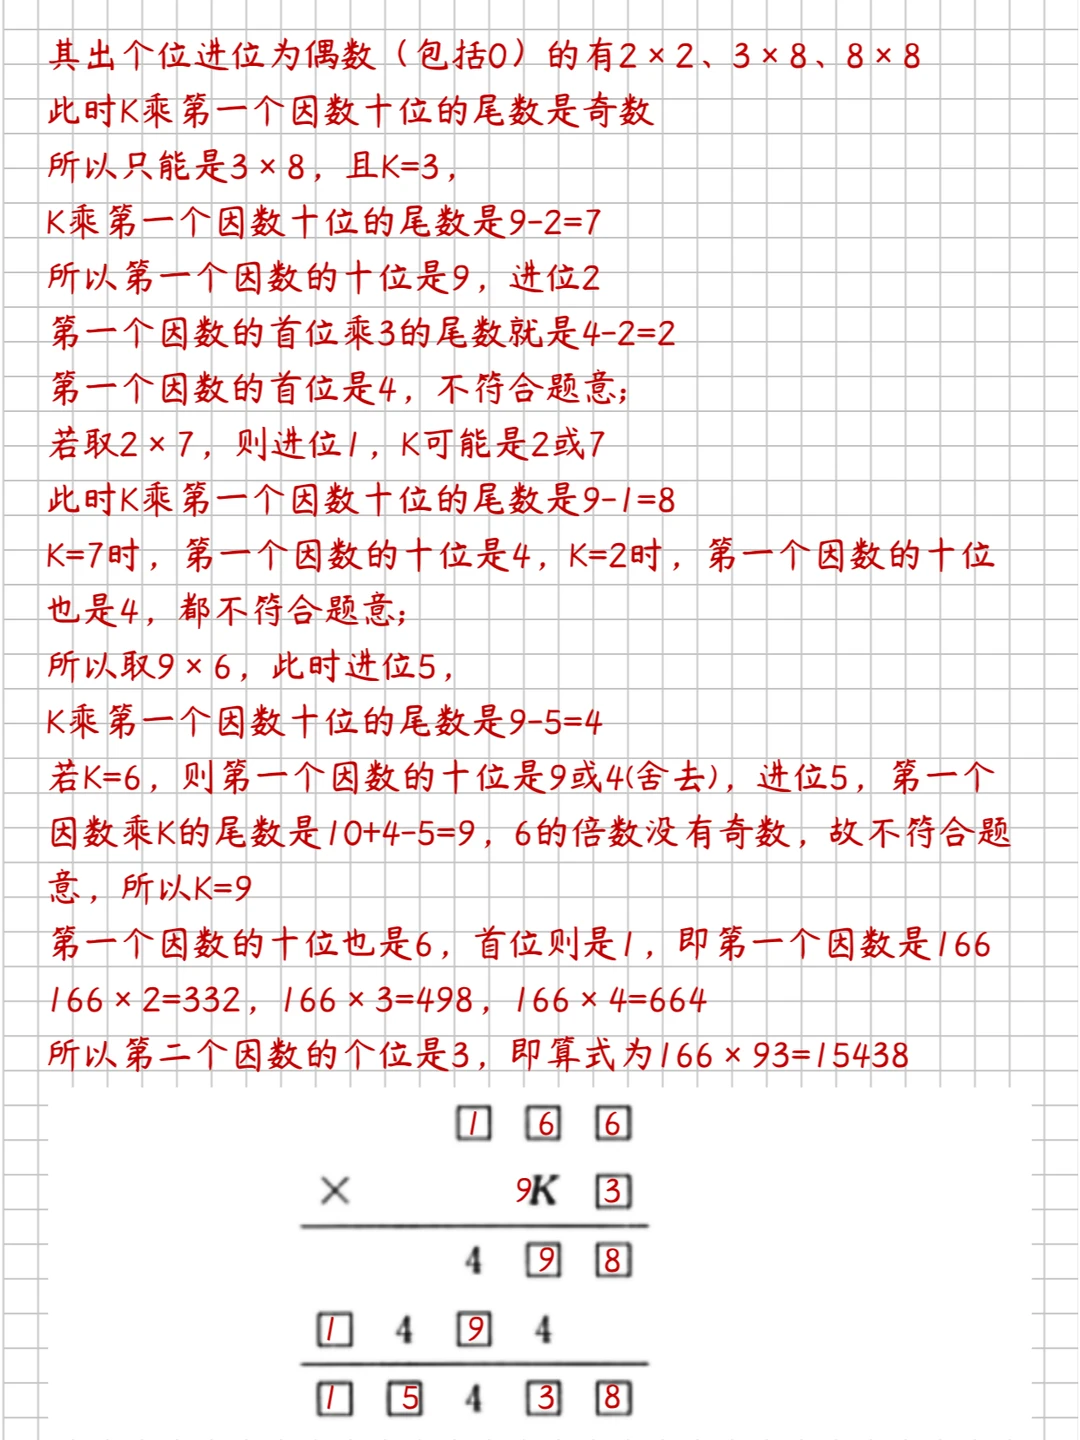 其出个位进位为偶数（包括0）的有2×2、3×8、8×8
此时K乘第一个因数十位的尾数是奇数
所以只能是3×8，且K=3，
K乘第一个因数十位的尾数是9-2=7
所以第一个因数的十位是9，进位2
第一个因数的首位乘3的尾数就是4-2=2
第一个因数的首位是4，不符合题意；
若取2×7，则进位1，K可能是2或7
此时K乘第一个因数十位的尾数是9-1=8
K=7时，第一个因数的十位是4，K=2时，第一个因数的十位
也是4，都不符合题意；
所以取9×6，此时进位5，
K乘第一个因数十位的尾数是9-5=4
若K=6，则第一个因数的十位是9或4(舍去)，进位5，第一个
因数乘K的尾数是10+4-5=9，6的倍数没有奇数，故不符合题
意，所以K=9
第一个因数的十位也是6，首位则是1，即第一个因数是166
166×2=332，166×3=498，166×4=664
所以第二个因数的个位是3，即算式为166×93=15438
1 6 6
× 9K 3
4 9 8
1 4 9 4
1 5 4 3 8